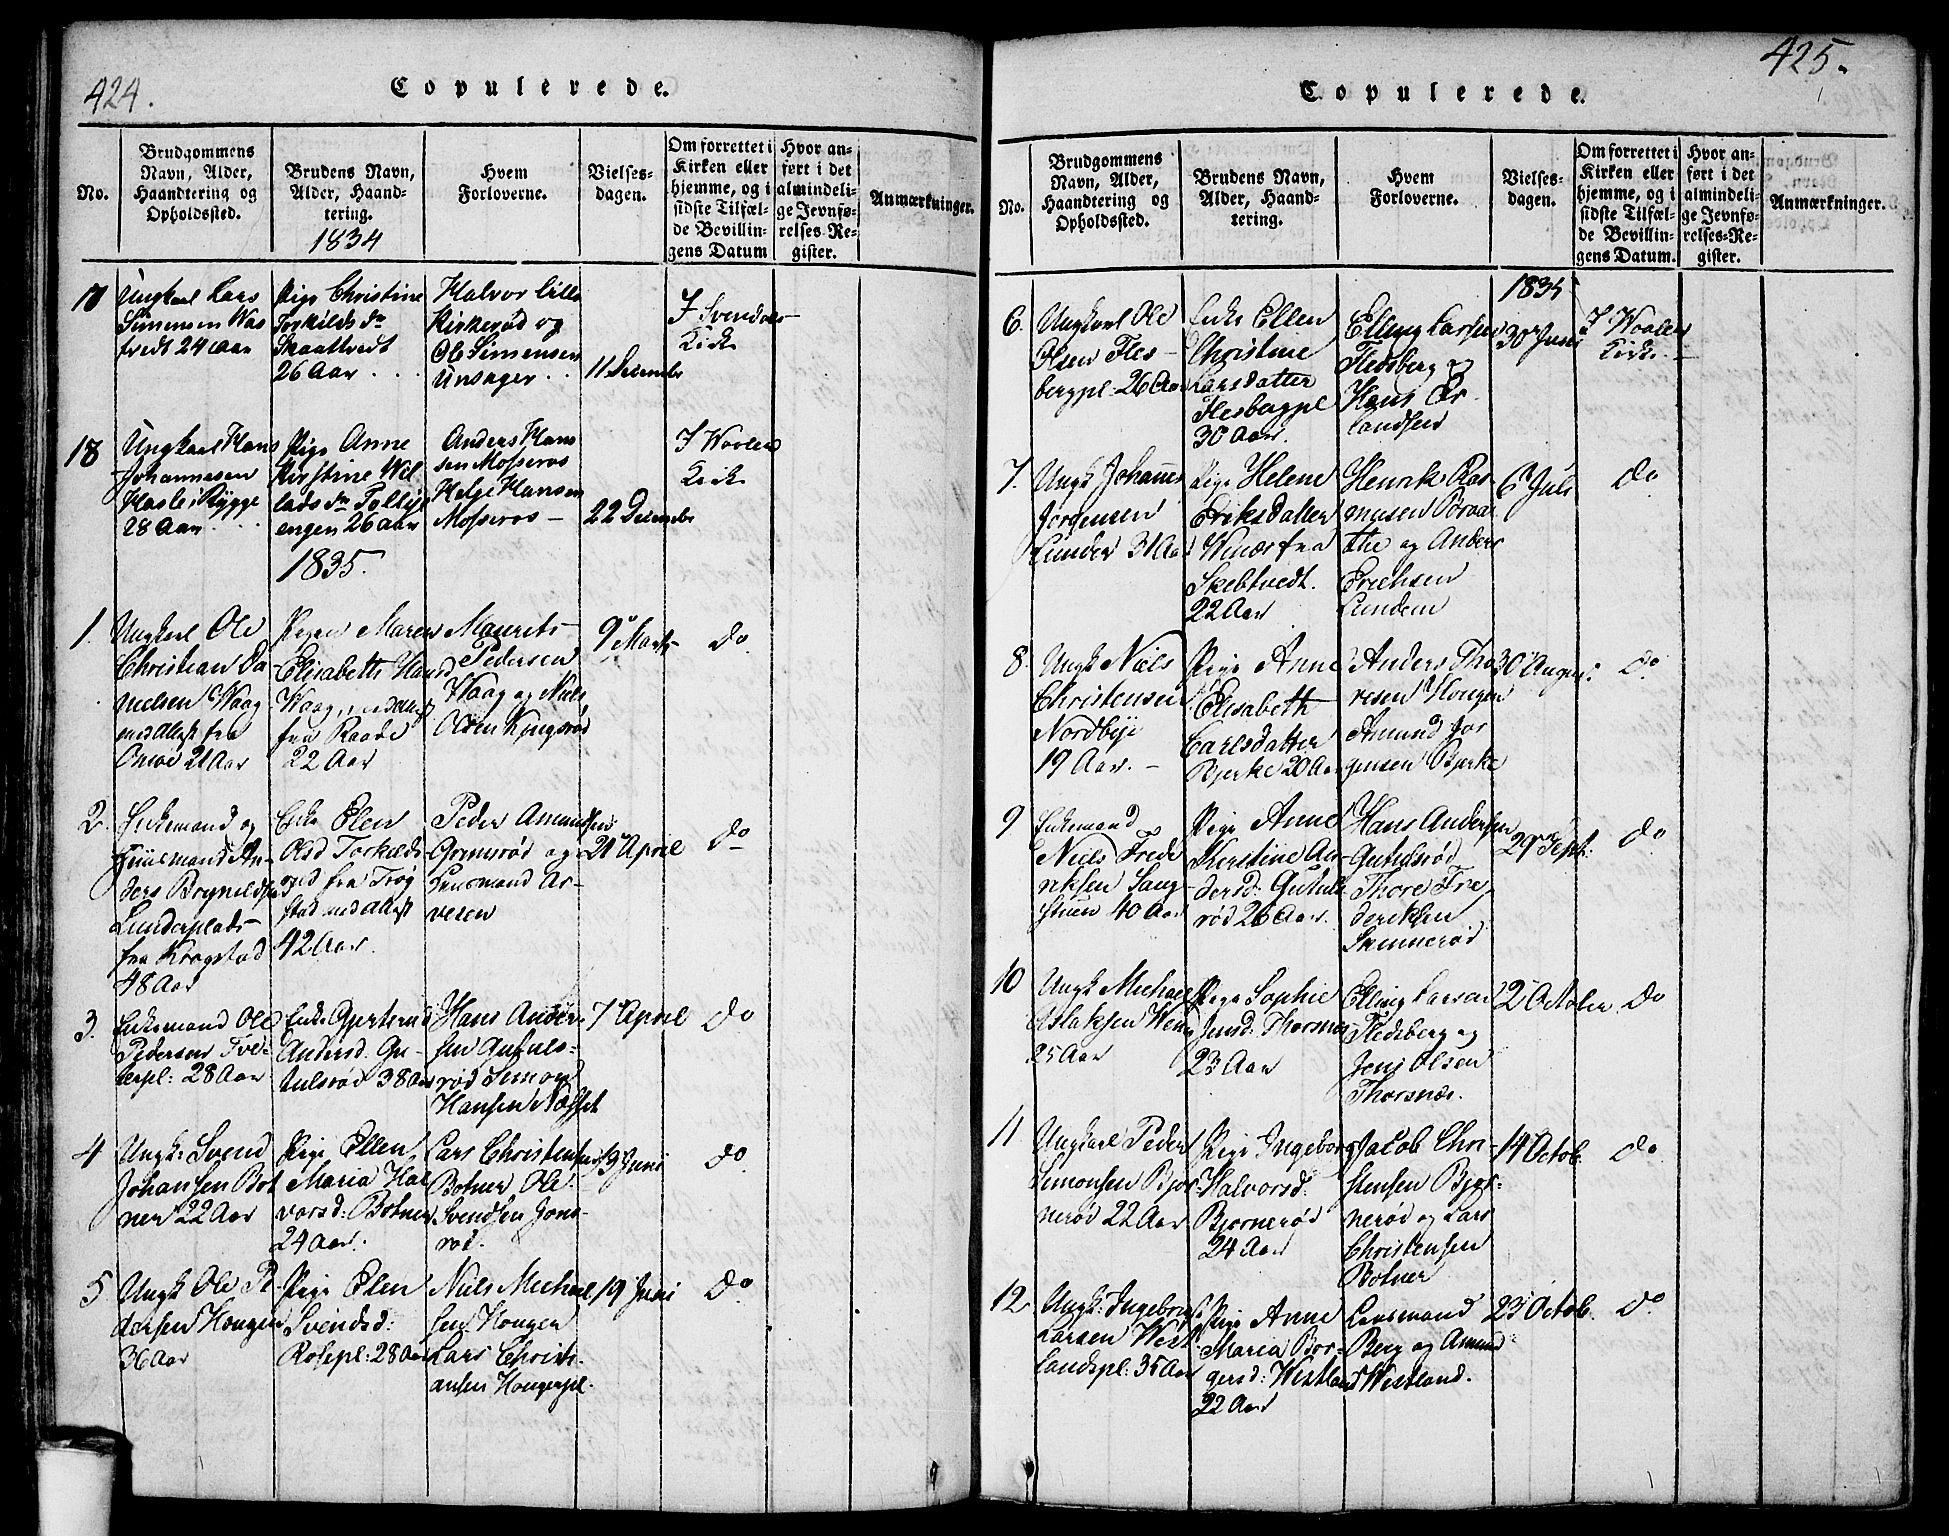 424.
Copulerede.
No.
Brudgommens Navn, Alder, Haandtering og Opholdssted.
Brudens Navn, Alder, Haandtering.
1834
Hvem Forloverne.
Vielsesdagen.
Om forrettet i Kirken eller hjemme, og i sidste Tilfælde Bevillingens Datum
Hvor anført i det almindelige Jevnførelses-Register.
Anmærkninger.
17
Ungkarl Lars
Simensen Was
tvedt 24 Aar
Pige Christine
Torkilds dr
Skaattvedt
26 Aar
Halvor Lille
Kirkerød og
Ole Simensen
Unsager
11 December
I Svendals
Kirke
18
Ungkarl Hans
Johannesen
Hasle i Rygge
28 Aar
Pige Anne
Kirstine Wil
lads dr
engen 26 Aar
Anders Hans
sen Mosseros
Helge Hansen
Mosseros
22 December
I Waaler
Kirke
1835.
1.
Ungkarl Ole
Christian Da
nielsen Waag
med Attest fra
Onsøe 21 Aar
Pigen Maren
Elisabeth Hansd
Waag, med Attest
fra Raade
22 Aar
Maurits
Pedersen
Waag og Niels
Olsen Kjngsrød
9 Marts
do
2.
Enkemand og
Huusmand An
ders Brynildsen
Lunderplads
fra Kraagstad
48 Aar
Enke Elen
Olsd Torkilds
rud fra Trøg
stad med Attest
42 Aar
Peder Amundsen
Grimsrød og
Lensmand Ar
vesen
21 April
do
3.
Enkemand Ole
Pedersen Tve
terpl: 28 Aar
Enke Gjertrud
Andersd. Gu
tulsrød 38 Aar
Hans Ander
sen Gutuls
rød Simon
Hansen Næsset
7 April
do
4
Ungk: Svend
Johansen Bot
ner 22 Aar
Pige Ellen
Maria Hal
vorsd: Botner
24 Aar.
Lars Christensen
Botner Ole
Svendsen Jons
rød.
19 Juni
do
5
Ungk Ole P
edersen Hougen
36 Aar
Pige Elen
Svendsd:
Rosepl: 28 Aar
Niels Michael
sen Hougen
Lars Christi
ansen Hougenpl.
19 Juni
do
425.
Copulerede.
No.
Brudgommens Navn, Alder, Haandtering og Opholdssted.
Brudens Navn, Alder, Haandtering.
Hvem Forloverne.
Vielsesdagen.
Om forrettet i Kirken eller hjemme, og i sidste Tilfælde Bevillingens Datum.
Hvor anført i det almindelige Jevnførelses-Register.
Anmærkninger.
1835
6.
Ungkarl Ole
Olsen Fles
bergpl. 26 Aar
Enke Ellen
Christine
Larsdatter
Flesbergpl
30 Aar.
Elling Larsen
Flesberg og
Hans Er
landsen
30 Juni
I Waaler
Kirke
7.
Ungk Johannes
Jørgensen
Lunder 31 Aar
Pige Helene
Eriksdatter
Winæs fra
Skebtvedt.
22 Aar
Henrik Ras
musen Pørvaa
the og Anders
Erichsen
Lundem
6 Juli
do
8.
Ungk Niels
Christensen
Nordbye
19 Aar.
Pige Anne
Elisabeth
Carlsdatter
Bjerke 20 Aar
Anders Tho
resen Hougen
Amund Jør
gensen Bjerke
30 August
do
9
Enkemand
Niels Frede
riksen Sang
stuen 40 Aar
Pige Anne
Kirstine An
dersd: Gutuls
rød 26 Aar.
Hans Andersen
Gutulsrød
Thore Fre
deriksen
Skinnerød
29 Sept:
do
10
Ungk Michael
Aslaksen Wein
25 Aar
Pige Sophie
Jensd: Thorsnæs
23 Aar
Elling Larsen
Flesberg og
Jens Olsen
Thorsnæs.
2 October
do
11
Ungkarl Peder
Simonsen Bjør
nerød 22 Aar
Pige Ingeborg
Halvorsd:
Bjørnerød
24 Aar
Jacob Chri
stensen Bjør
nerød og Lars
Christensen
Botner
14 Octob.
do
12
Ungk: Ingebrigt
Larsen West
landspl: 35 Aar
Pige Anne
Maria Bør
gersd: Westland
22 Aar
Lensmand
Berg og Amund
Westland.
23 Octob.
do